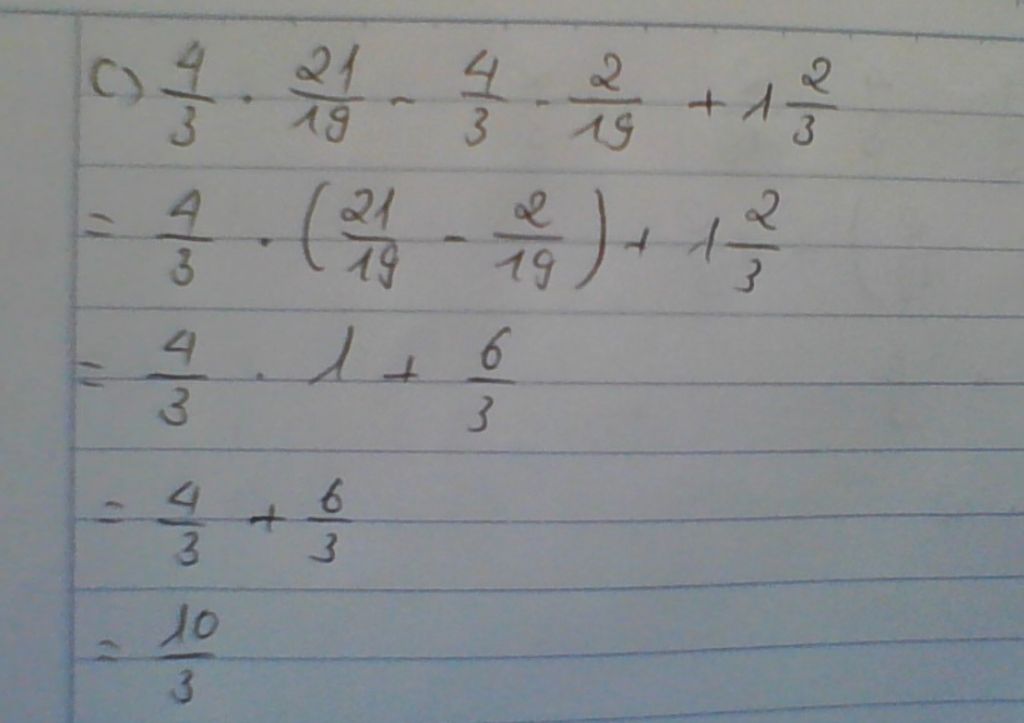 c) 4/3 . 21/19 - 4/3 . 2/19 + 1 2/3
= 4/3 . (21/19 - 2/19) + 1 2/3
= 4/3 . 1 + 6/3
= 4/3 + 6/3
= 10/3